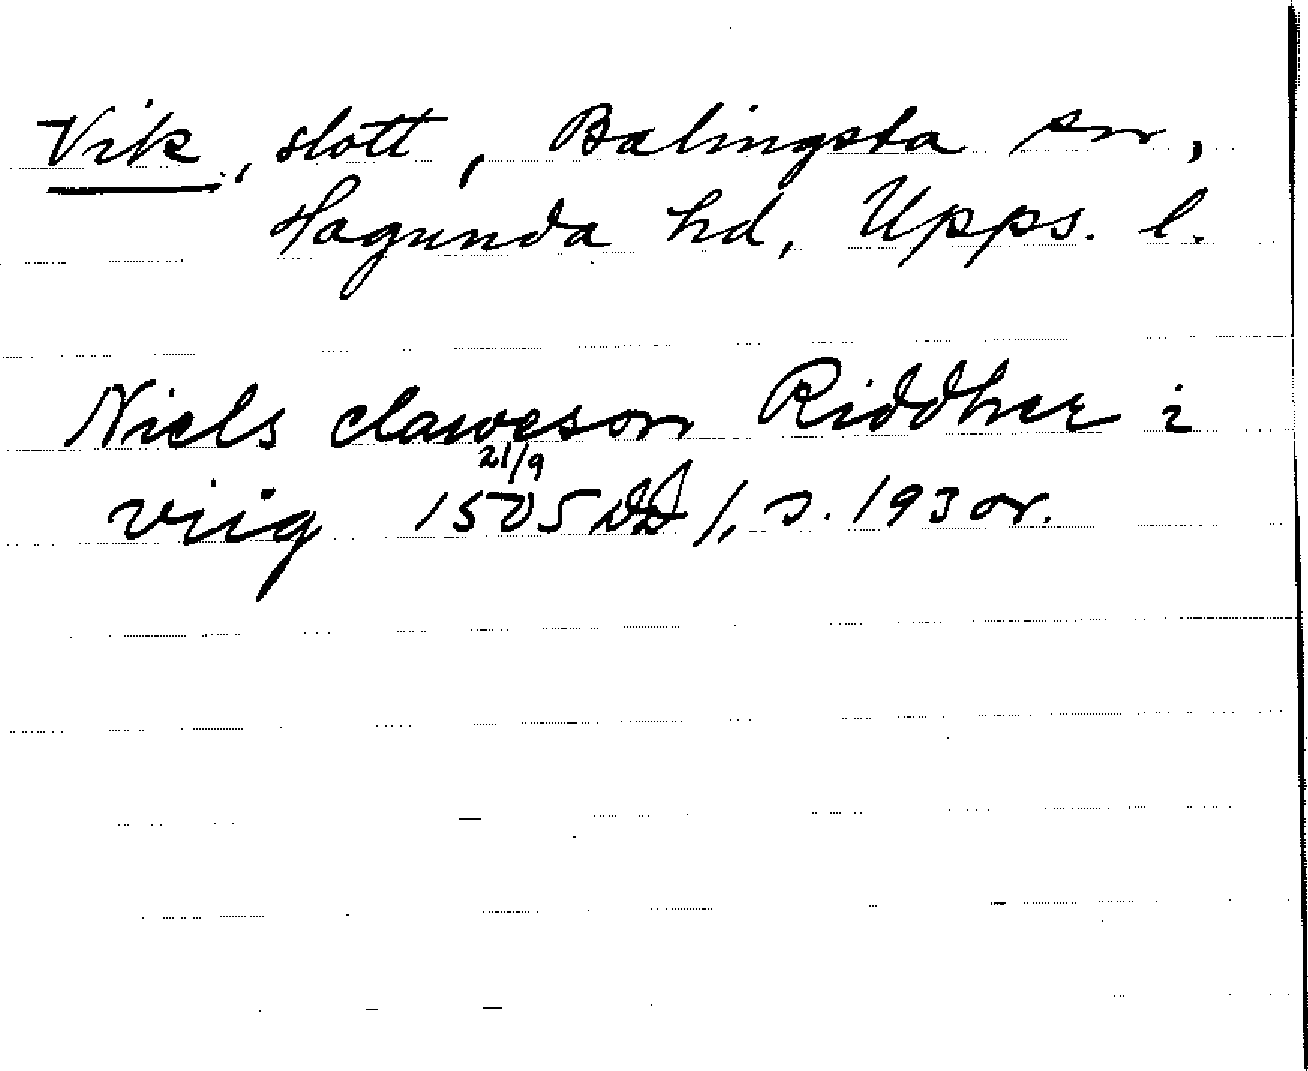 Vik, slott, Balingsta sn,
Hagunda hd, Upps. l.
Niels claweson Riddher i
viig 1505 21/9 DD 1, s. 193 or.